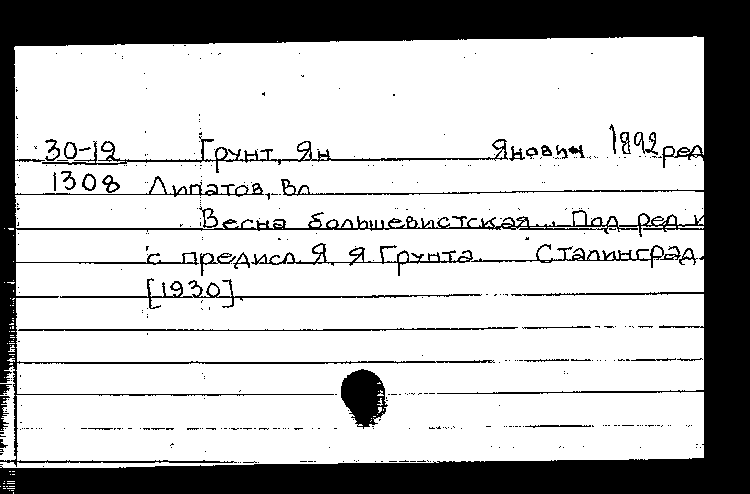 30-12 Грунт, Ян Янович 1892 ред
1308 Липатов, Вл
Весна большевистская... Под ред и
с предисл. Я. Я. Грунта. Сталинград.
[1930].